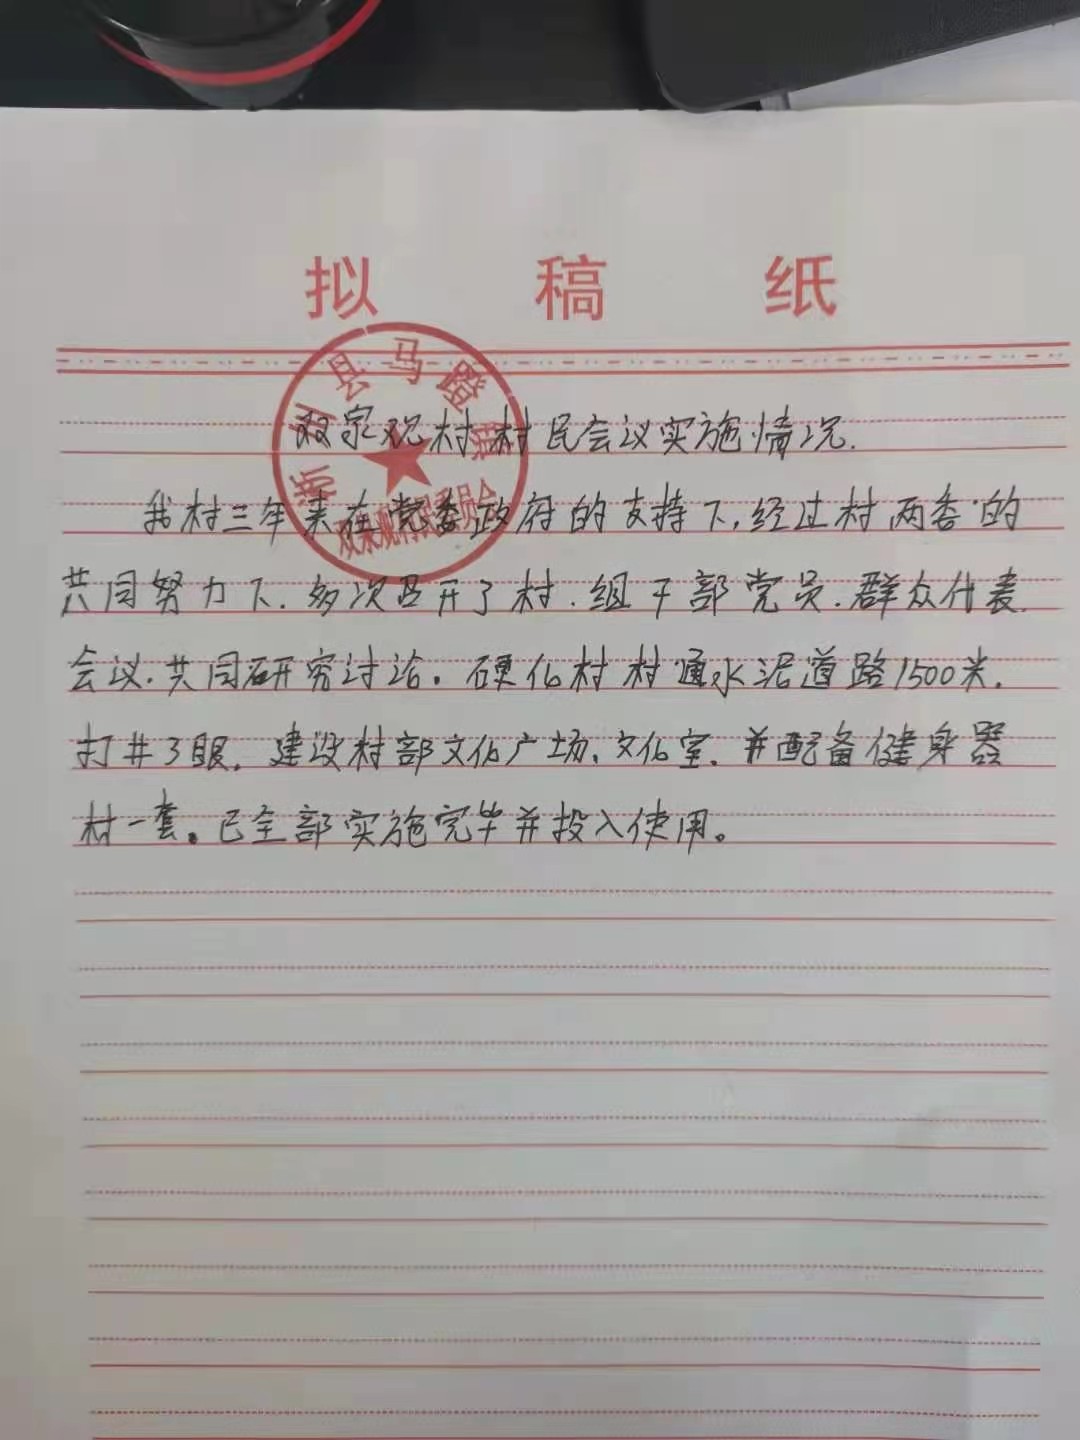 拟稿纸
双宗观村村民会议实施情况.
我村三年来在党委政府的支持下,经过村两委的
共同努力下.多次召开了村.组干部党员.群众代表
会议.共同研究讨论。硬化村村通水泥道路1500米.
打井3眼.建设村部文化广场、文化室.并配备健身器
村一套。已全部实施完毕并投入使用。
淅川县马蹬镇
双宗观村村民委员会